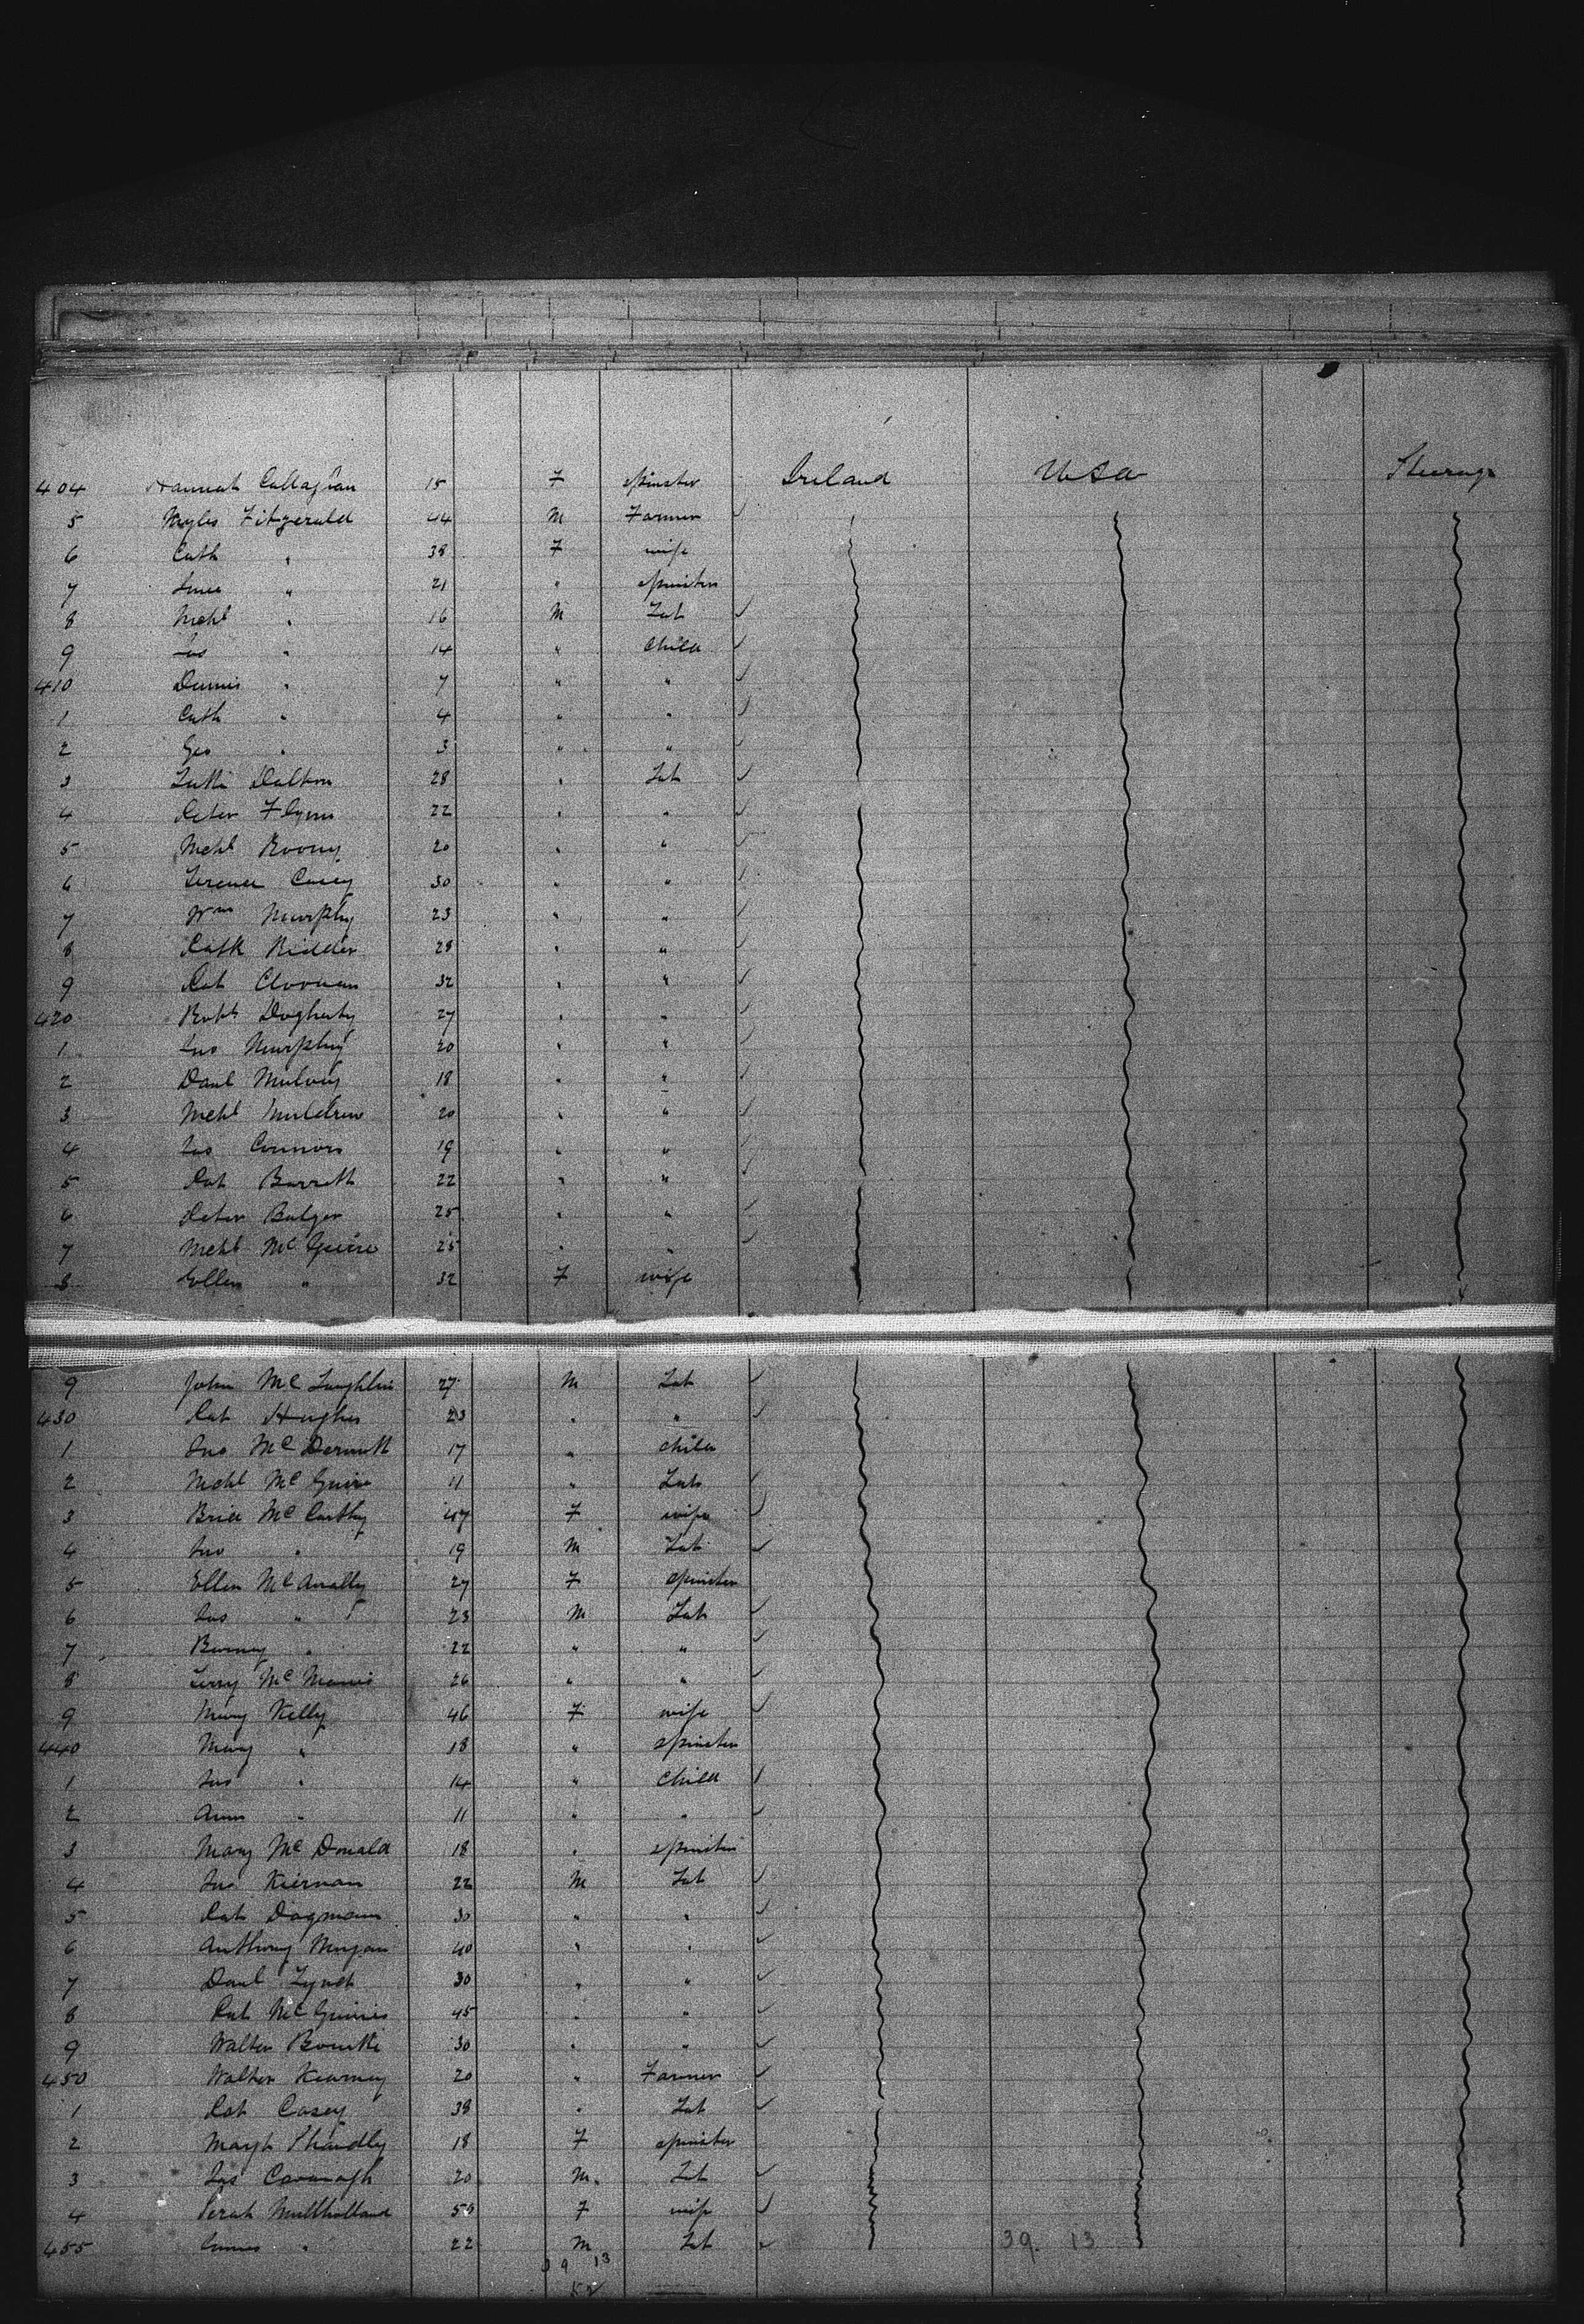 404 Hannah Callaghan 15 F spinster Ireland USA Steerage
5 Myles Fitzgerald 44 M Farmer
6 Cath " 38 F wife
7 " 21 " spinster
8 Mchl " 16 M Lab
9 Jno " 14 " Child
410 Dennis " 7 " "
1 Cath " 4 " "
2 Geo " 3 " "
3 Dalton 28 " Lab
4 Peter Flynn 22 " "
5 Mchl Roony 20 " "
6 Terence Casey 30 " "
7 Wm Murphy 23 " "
8 Patk 28 " "
9 Pat 32 " "
420 Robt Dogherty 27 " "
1 Jno Murphy 20 " "
2 Danl Mulvey 18 " "
3 Mchl Muldrew 20 " "
4 Jas Connors 19 " "
5 Pat Barrett 22 " "
6 Peter Bulger 25 " "
7 Mchl McGuire 25 " "
8 Ellen " 32 F wife
9 John McLaughlin 27 M Lab
430 Pat Hughes 23 " "
1 Jno McDermott 17 " child
2 Mchl McGuire 11 " Lab
3 McCarthy 47 F wife
4 Jno " 19 M Lab
5 Ellen McAnally 27 F spinster
6 Jas " 23 M Lab
7 Barney " 22 " "
8 Terry McManus 26 " "
9 Mary Kelly 46 F wife
440 Mary " 18 " spinster
1 Jno " 14 " Child
2 Ann " 11 " "
3 Mary McDonald 18 " spinster
4 Jno Kiernan 22 M Lab
5 Pat 30 " "
6 Anthony Morgan 40 " "
7 Danl Lynch 30 " "
8 Pat McGuinnis 45 " "
9 Walter Bourke 30 " "
450 Walter Kearney 20 " Farmer
1 Pat Casey 38 " Lab
2 Margt 18 F spinster
3 Jas Cavanagh 20 M Lab
4 Sarah Mullholland 50 F wife
455 James " 22 M Lab 39 13
39 13
52